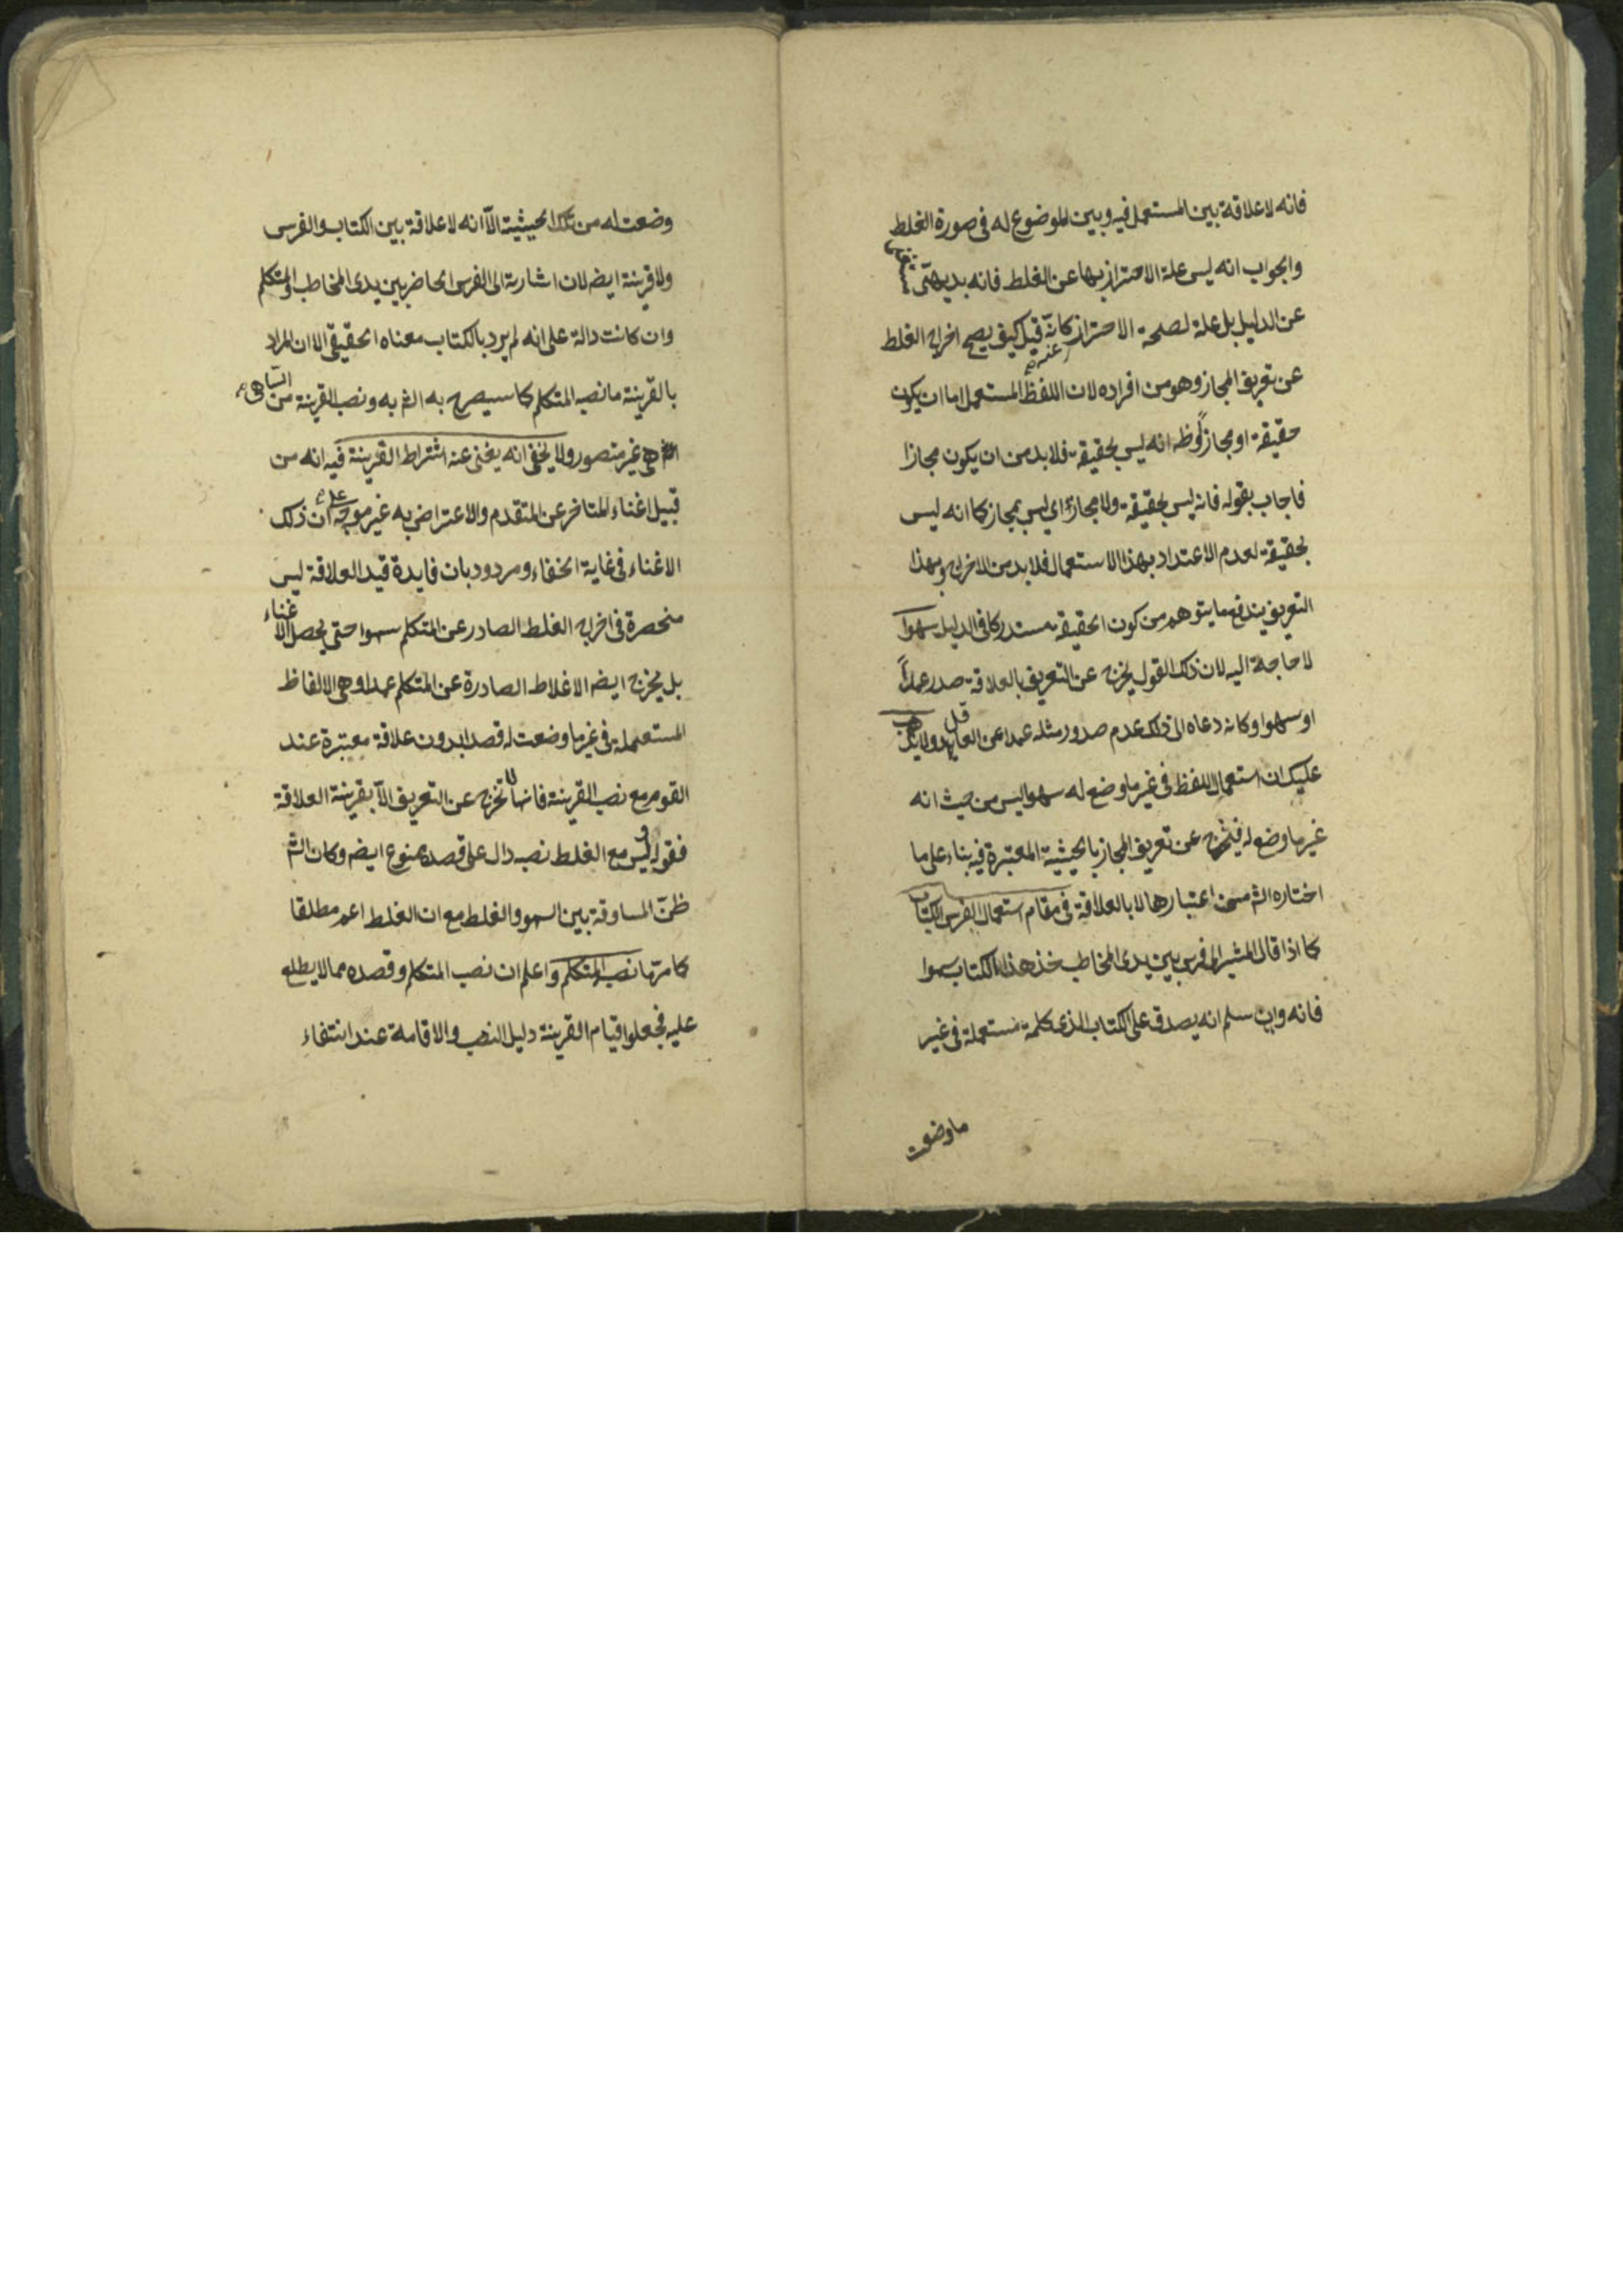 فانه لا علاقة بين المستعمل فيه وبين الموضوع له في صورة الغلط
والجواب انه ليس علة الاحتراز بها عن الغلط فانه بديهي
عن الدليل بل علة لصحة الاحتراز كانه قيل كيف يصح اخراج الغلط
عن تعريف المجاز وهو من افراده لان اللفظ المستعمل اما ان يكون
حقيقة او مجازا وظ انه ليس بحقيقة فلا بد من ان يكون مجازا
فاجاب بقوله فانه ليس بحقيقة ولا مجاز اي ليس بمجاز كما انه ليس
بحقيقة لعدم الاعتداد بهذا الاستعمال فلا بد من الاخراج وبهذا
التعريف يندفع ما يتوهم من كون الحقيقة مستدركا في الدليل سهوا
لا حاجة اليه لان ذلك القول يخرج عن التعريف بالعلاقة صدر عمدا
او سهوا وكانه دعاه الى ذلك عدم صدور مثله عمدا عن العاقل ولا يذهب
عليك ان استعمال اللفظ في غير ما وضع له سهوا ليس من حيث انه
غير ما وضع له فيخرج عن تعريف المجاز بالحيثية المعتبرة فيه بناء على ما
اختاره الش من اعتبارها لا بالعلاقة في مقام استعمال الفرس الكتاب
كما اذا قال المشير الى فرس بين يدي المخاطب خذ هذا الكتاب سهوا
فانه وان سلم انه يصدق على الكتاب الذي كلمة مستعملة في غير
ما وضعت
وضعت له من تلك الحيثية الا انه لا علاقة بين الكتاب والفرس
ولا قرينة ايضه لان اشارته الى الفرس الحاضر بين يدي المخاطب والمتكلم
وان كانت دالة على انه لم يرد بالكتاب معناه الحقيقي الا ان المراد
بالقرينة ما نصبه المتكلم كما سيصرح به الش به ونصب القرينة من الساهي
غير متصور ولا يخفى انه يغني عنه اشتراط القرينة فيه انه من
قبيل اغناء المتاخر عن المتقدم والاعتراض به غير موجه على ان ذلك
الاغناء في غاية الخفاء ومردود بان فايدة قيد العلاقة ليس
منحصرة في اخراج الغلط الصادر عن المتكلم سهوا حتى يحصل الاغناء
بل يخرج ايضه الاغلاط الصادرة عن المتكلم عمدا وهي الالفاظ
المستعملة في غير ما وضعت له قصدا بدون علاقة معتبرة عند
القوم مع نصب القرينة فانها لا تخرج عن التعريف الا بقرينة العلاقة
فقوله وليس مع الغلط نصب دال على قصده ممنوع ايضه وكان الش
ظن المساوقة بين السهو والغلط مع ان الغلط اعم مطلقا
كما مر ما نصبه المتكلم واعلم ان نصب المتكلم وقصده مما لا يطلع
عليه فجعلوا قيام القرينة دليل النصب والاقامة عند انتفاء